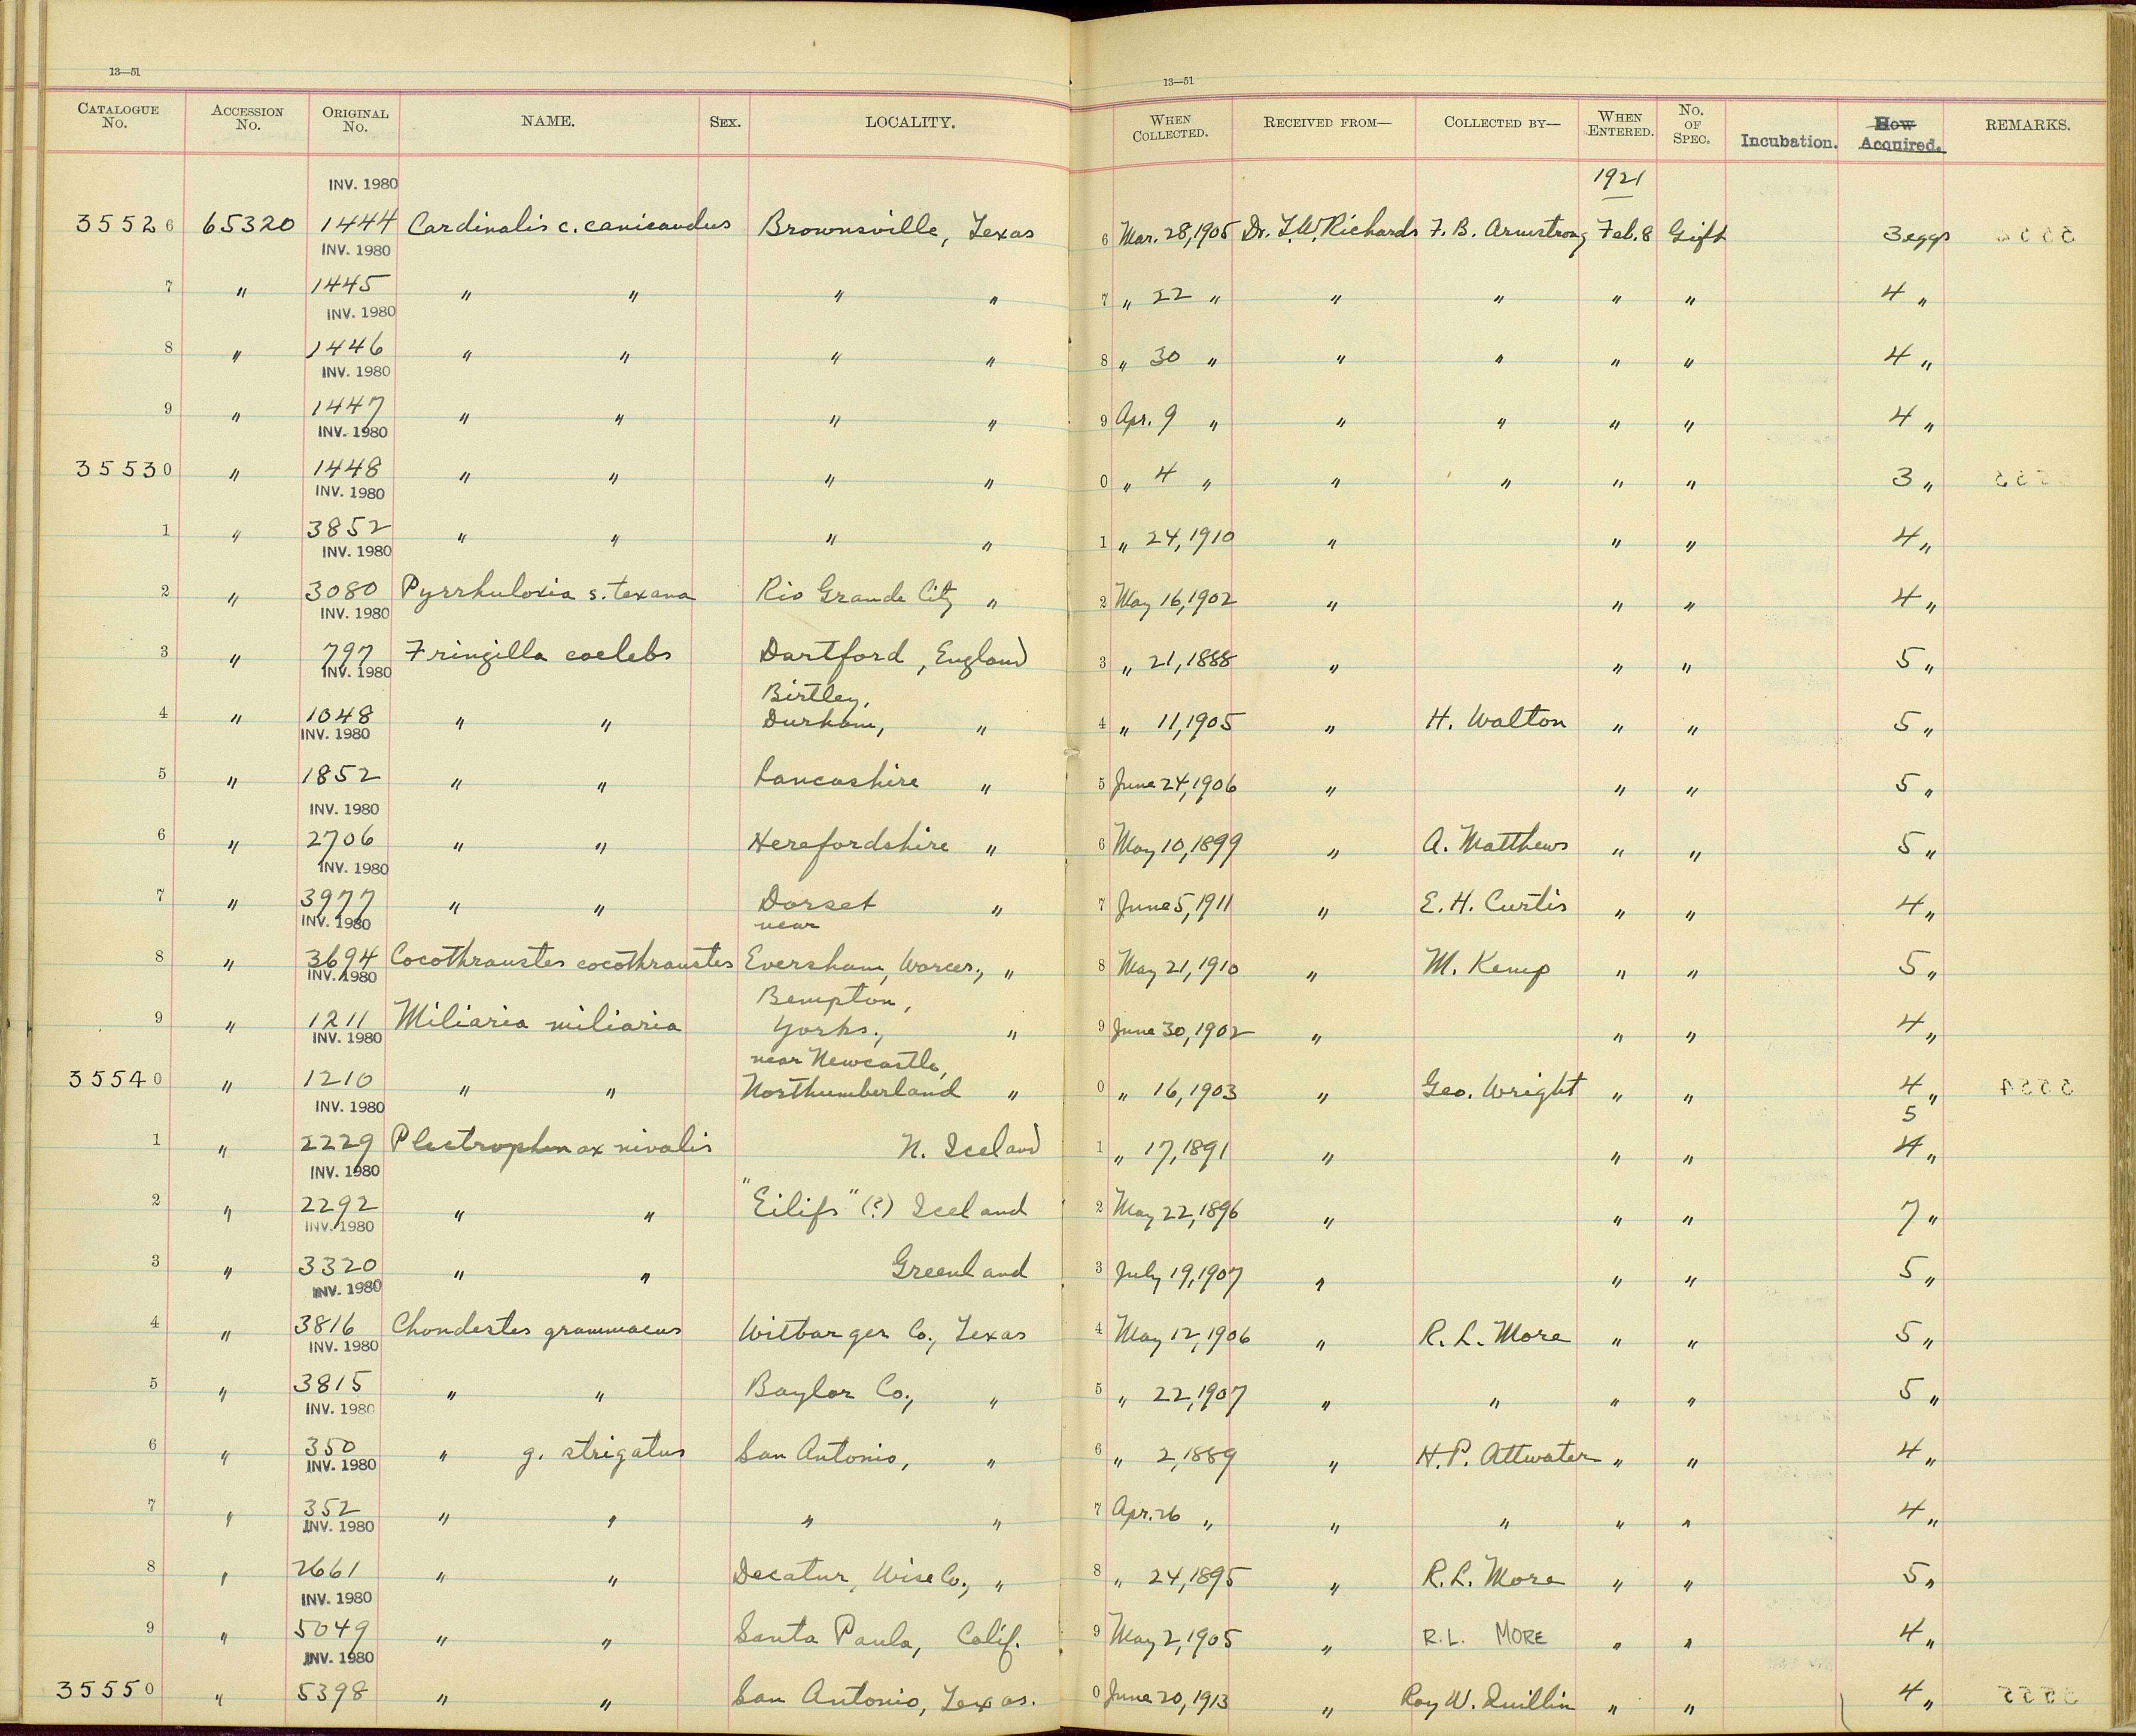 13—51
13—51
CATALOGUE No. ACCESSION No. ORIGINAL No. NAME. SEX. LOCALITY. WHEN COLLECTED. RECEIVED FROM— COLLECTED BY— WHEN ENTERED. No. OF SPEC. Incubation. How Acquired. REMARKS.
INV. 1980 1921
35526 65320 1444 Cardinalis c. canicaudus Brownsville, Texas 6 Mar. 28, 1905 Dr. T.W. Richards F. B. Armstrong Feb. 8 Gift 3 eggs
INV. 1980
7 " 1445 " " " " 7 " 22 " " " " " 4 "
INV. 1980
8 " 1446 " " " " 8 " 30 " " " " " 4 "
INV. 1980
9 " 1447 " " " " 9 Apr. 9 " " " " " 4 "
INV. 1980
35530 " 1448 " " " " 0 " 4 " " " " " 3 "
INV. 1980
1 " 3852 " " " " 1 " 24, 1910 " " " 4 "
INV. 1980
2 " 3080 Pyrrhuloxia s. texana Rio Grande City " 2 May 16, 1902 " " " 4 "
INV. 1980
3 " 797 Fringilla coelebs Dartford, England 3 " 21, 1888 " " " 5 "
INV. 1980
Birtley,
4 " 1048 " " Durham, " 4 " 11, 1905 " H. Walton " " 5 "
INV. 1980
5 " 1852 " " Lancashire " 5 June 24, 1906 " " " 5 "
INV. 1980
6 " 2706 " " Herefordshire " 6 May 10, 1899 " A. Matthews " " 5 "
INV. 1980
7 " 3977 " " Dorset " 7 June 5, 1911 " E. H. Curtis " " 4 "
INV. 1980 near
8 " 3694 Cocothraustes cocothraustes Eversham, Worcer., " 8 May 21, 1910 " M. Kemp " " 5 "
INV. 1980
Bempton,
9 " 1211 Miliaria miliaria Yorks., " 9 June 30, 1902 " " " 4 "
INV. 1980
near Newcastle,
35540 " 1210 " " Northumberland " 0 " 16, 1903 " Geo. Wright " " 4 "
INV. 1980 5
1 " 2229 Plectrophenax nivalis N. Iceland 1 " 17, 1891 " " " 4 "
INV. 1980
2 " 2292 " " "Eilifs" (?) Iceland 2 May 22, 1896 " " " 7 "
INV. 1980
3 " 3320 " " Greenland 3 July 19, 1907 " " " 5 "
INV. 1980
4 " 3816 Chondestes grammacus Witbarger Co., Texas 4 May 12, 1906 " R. L. More " " 5 "
INV. 1980
5 " 3815 " " Baylor Co., " 5 " 22, 1907 " " " " 5 "
INV. 1980
6 " 350 " g. strigatus San Antonio, " 6 " 2, 1889 " H. P. Attwater " " 4 "
INV. 1980
7 " 352 " " " " 7 Apr. 26 " " " " " 4 "
INV. 1980
8 " 2661 " " Decatur, Wise Co., " 8 " 24, 1895 " R. L. More " " 5 "
INV. 1980
9 " 5049 " " Santa Paula, Calif. 9 May 2, 1905 " R. L. MORE " " 4 "
INV. 1980
35550 " 5398 " " San Antonio, Texas. 0 June 20, 1913 " Roy W. Quillin " " 4 "